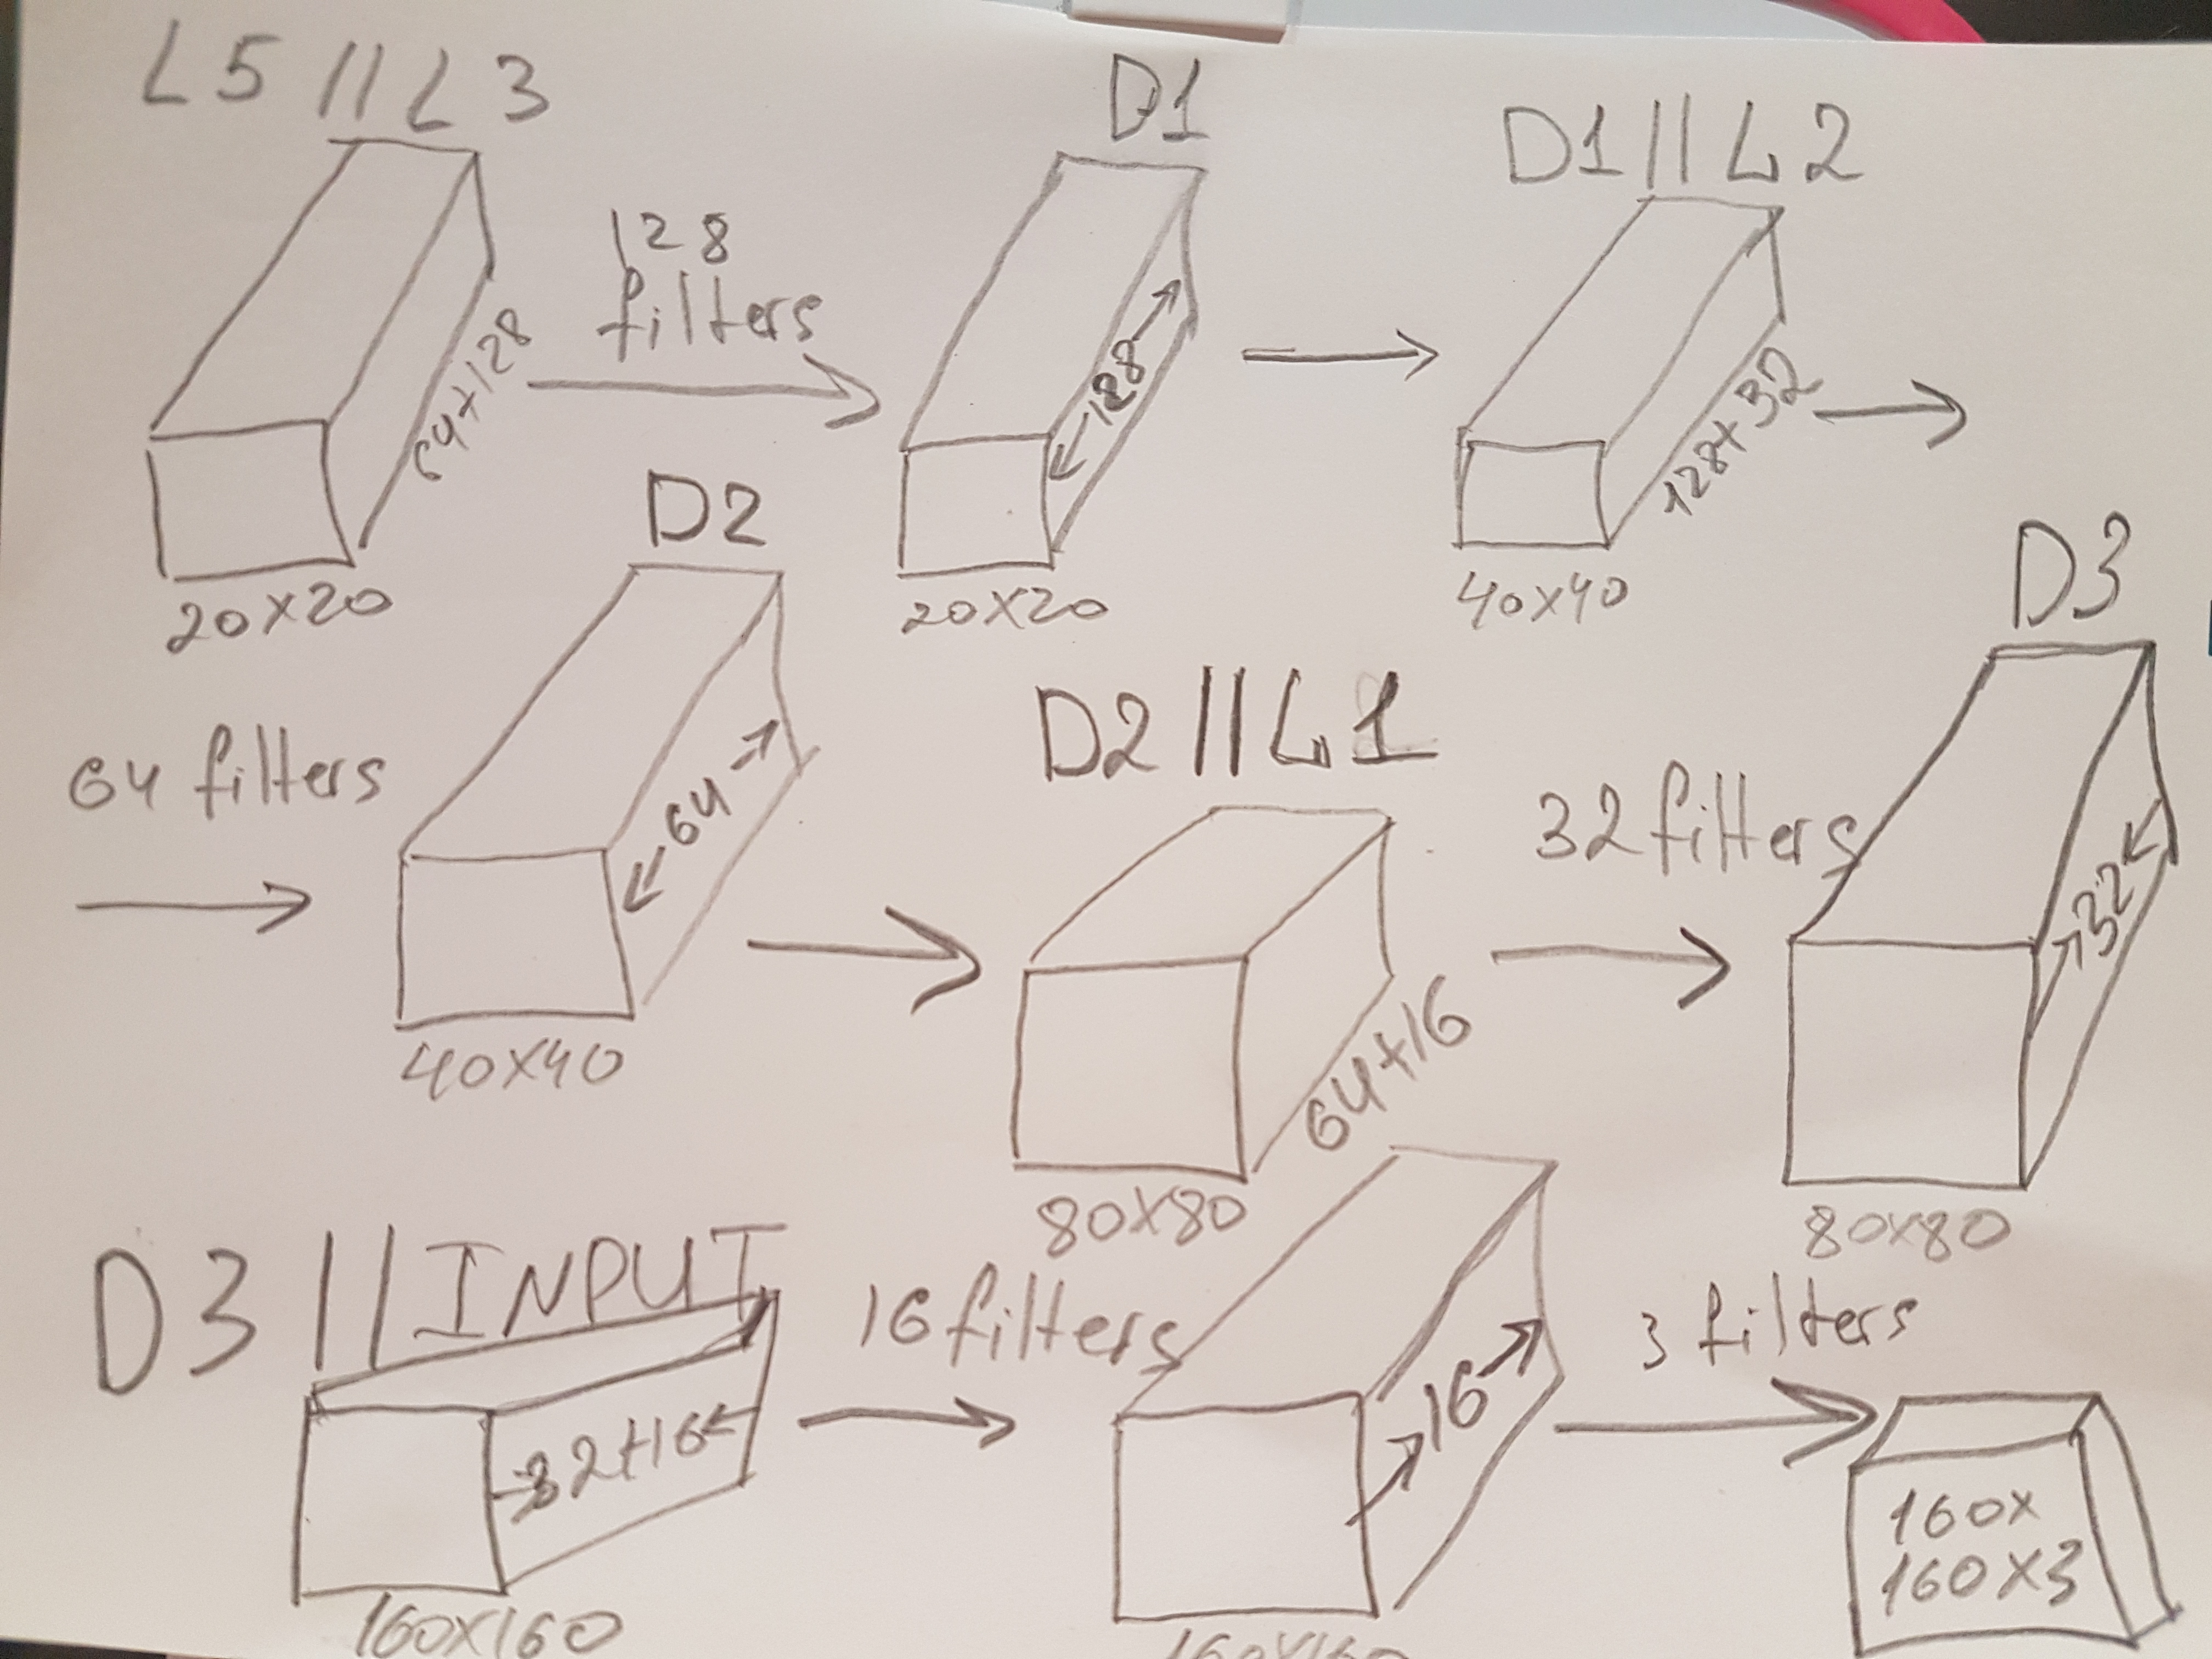 L5 || L3
64+128
20x20
128
filters
D1
128
20x20
D1 || L2
128+32
40x40
64 filters
D2
64
40x40
D2 || L1
64+16
80x80
32 filters
D3
32
80x80
D3 || INPUT
32+16
160x160
16 filters
16
160x160
3 filters
160x
160x3